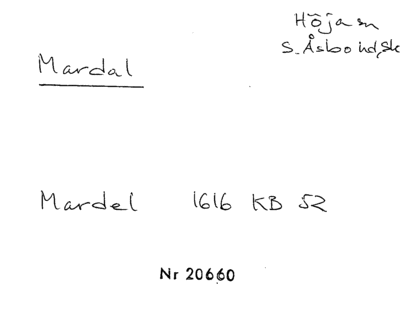 Höja sn
S. Åsbo hd, Sk
Mardal
Mardel 1616 KB 52
Nr 20660